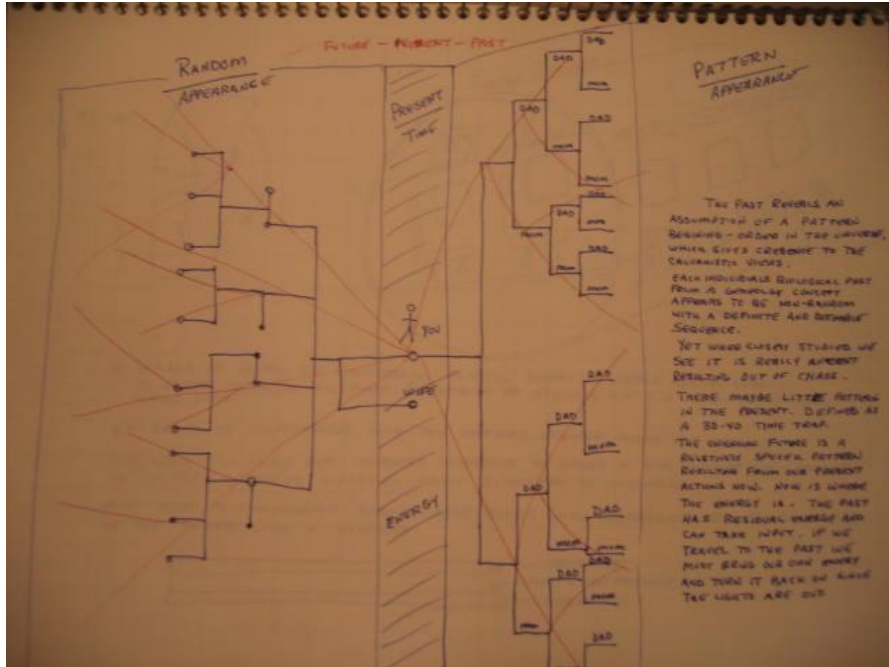 FUTURE - PRESENT - PAST
RANDOM
APPEARANCE
PRESENT
TIME
YOU
WIFE
ENERGY
DAD
DAD
MOM
DAD
DAD
MOM
MOM
DAD
DAD
MOM
MOM
DAD
MOM
DAD
DAD
MOM
DAD
DAD
MOM
MOM
DAD
DAD
MOM
MOM
DAD
PATTERN
APPEARANCE
THE PAST REVEALS AN
ASSUMPTION OF A PATTERN
BEGINING - ORDER IN THE UNIVERSE,
WHICH GIVES CREDENCE TO THE
VIEWS.
EACH INDIVIDUALS BIOLOGICAL PAST
FROM A CONCEPT
APPEARS TO BE NON-RANDOM
WITH A DEFINITE AND
SEQUENCE.
YET WHEN CLOSELY STUDIED WE
SEE IT IS REALLY
RESULTING OUT OF CHAOS.
THERE MAYBE LITTLE PATTERN
IN THE PRESENT. DEFINED AS
A 3D-4D TIME TRAP.
THE UNKNOWN FUTURE IS A
RELATIVELY PATTERN
RESULTING FROM OUR PRESENT
ACTIONS NOW. NOW IS WHERE
THE ENERGY IS. THE PAST
HAS RESIDUAL ENERGY AND
CAN TAKE INPUT. IF WE
TRAVEL TO THE PAST WE
MUST BRING OUR OWN ENERGY
AND TURN IT BACK ON SINCE
THE LIGHTS ARE OUT